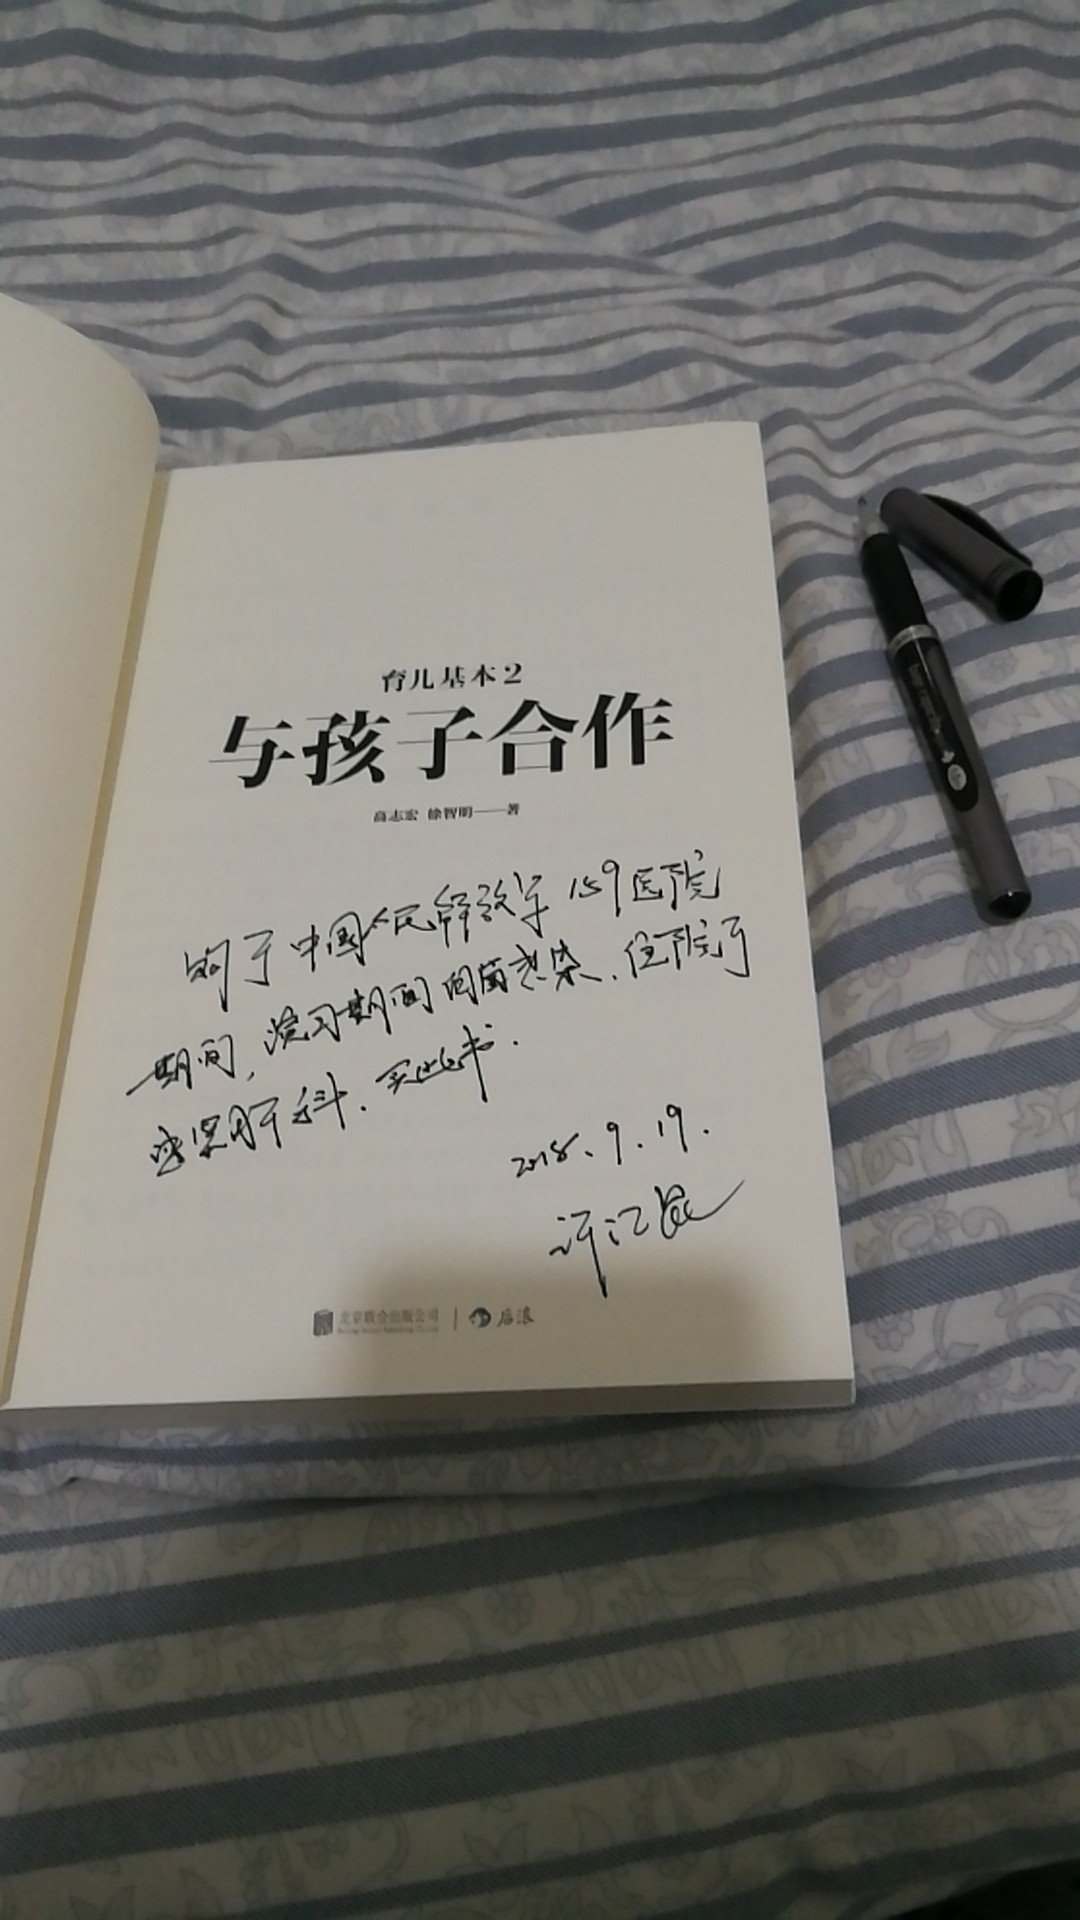 育儿基本2
与孩子合作
高志宏 徐智明——著
购于中国人民解放军159医院
期间,实习期间细菌感染.住院于
呼吸肝科.买此书.
2018.9.19.
许江
北京联合出版公司 | 后浪